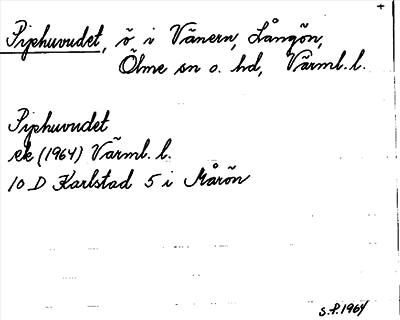 +
Piphuvudet, ö i Vänern, Långön,
Ölme sn o. hd, Värml. l.
Piphuvudet
ek (1964) Värml. l.
10 D Karlstad 5 i Mårön
S.P. 1964